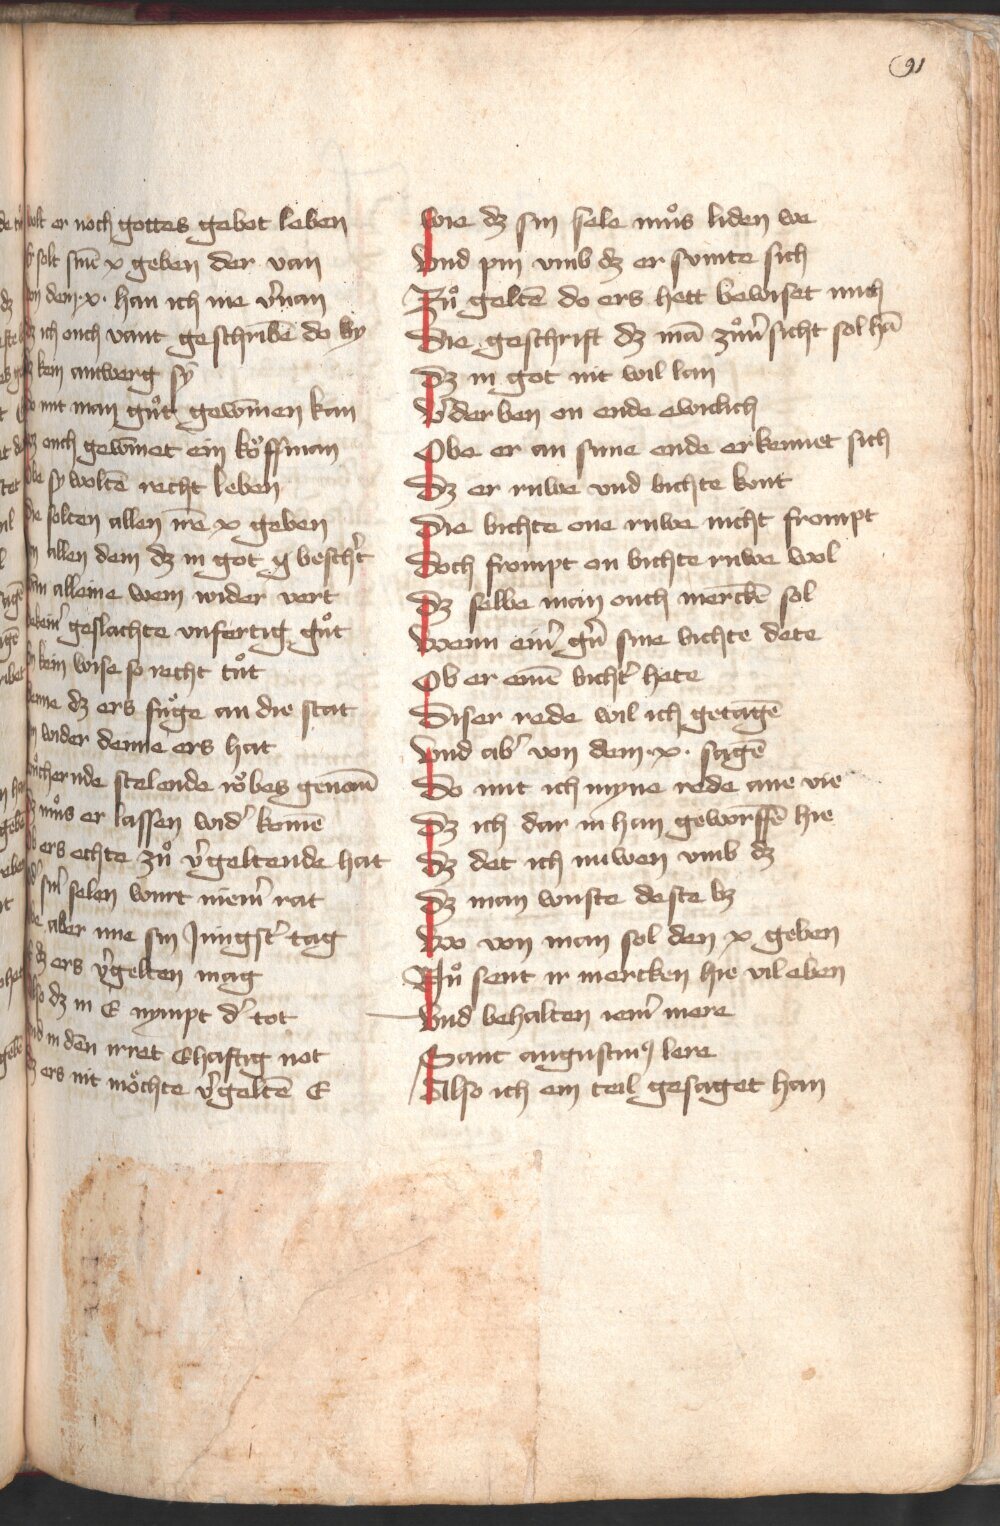 91
wolt er noch gottes gebot leben
solt sinē x geben der van
von dem ·x· han ich me v̓nan
dz ich ouch vant geschribē do by
kein antwerg sÿ
do mit man gůt gewīnen kan
dz ouch gewīnet ein köffman
Obe sy woltē recht leben
die solten allen ire x geben
in allen dem dz in got
alleine wem wider vert
geslachte vnfertig gůt
kein wise so recht tůt
denne dz ers fůge an die stat
wider denne ers hat
stelende röbes genom̄
dz můs er lassen wid̓ komē
Ob ers echte zů v̓geltende hat
sin̓ selen wurt niem̓ rat
aber nne sin Jungst̓ tag
dz ers v̓gelten mag
Also dz in E nympt d̓ tot
in den irret Ehaftig not
dz ers nit möchte v̓geltē E
Wie dz sin sele můs liden we
Vnd pin vmb dz er sumte sich
Zů geltē do ers hett bewiset mich
Die geschrift dz mā zům̓sicht sol hā
Dz in got nit wil lan
V̓derben on ende ewiclich
Obe er an sime ende erkennet sich
Dz er ruwe vnd bichte kont
Die bichte one ruwe nicht frompt
Doch frompt on bichte ruwe wol
Dz selbe man ouch merckē sol
Wenn ein̓ gn̓ sine bichte dete
Ob er einē bicht̓ hete
Diser rede wil ich getagē
Vnd ab̓ von dem ·x· sagē
Do mit ich myne rede ane vie
Dz ich dar in han geworffē hie
Dz det ich nuwen vmb dz
Dz man wuste deste bz
Wo von man sol den x geben
Nů sent ir mercken hie vil eben
Vnd behalten iem̓ mere
Sant augustin⁹ lere
Also ich ein teil gesaget han